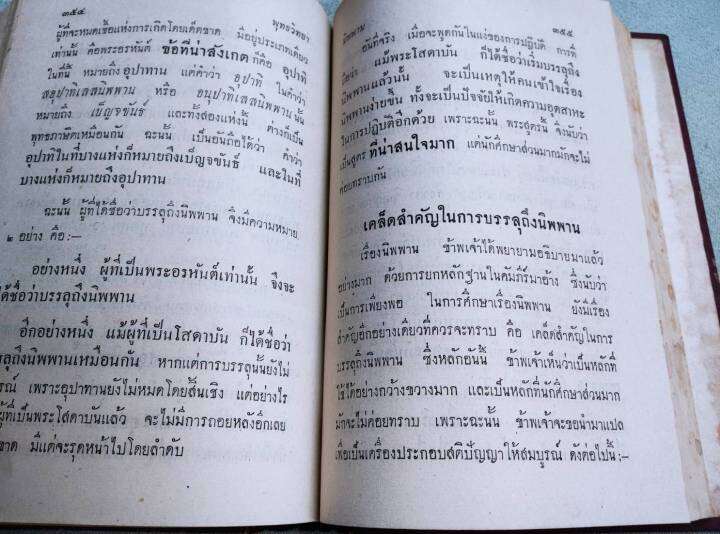 ๓๕๔ พุทธวิทยา
ผู้ที่จะหมดเชื้อแห่งการเกิดโดยเด็ดขาด มีอยู่ประเภทเดียว
เท่านั้น คือพระอรหันต์ ข้อที่น่าสังเกต ก็คือ อุปาทิ
ในที่นี้ หมายถึง อุปาทาน แต่คำว่า อุปาทิ ในคำว่า
สอุปาทิเสสนิพพาน หรือ อนุปาทิเสสนิพพาน นั้น
หมายถึง เบ็ญจขันธ์ และทั้งสองแห่งนี้ ต่างก็เป็น
พุทธภาษิตเหมือนกัน ฉะนั้น เป็นอันถือได้ว่า คำว่า
อุปาทิในที่บางแห่งก็หมายถึงเบ็ญจขันธ์ และในที่
บางแห่งก็หมายถึงอุปาทาน
ฉะนั้น ผู้ที่ได้ชื่อว่าบรรลุถึงนิพพาน จึงมีความหมาย
๒ อย่าง คือ:—
อย่างหนึ่ง ผู้ที่เป็นพระอรหันต์เท่านั้น จึงจะ
ได้ชื่อว่าบรรลุถึงนิพพาน
อีกอย่างหนึ่ง แม้ผู้ที่เป็นโสดาบัน ก็ได้ชื่อว่า
บรรลุถึงนิพพานเหมือนกัน หากแต่การบรรลุนั้นยังไม่
รณ์ เพราะอุปาทานยังไม่หมดโดยสิ้นเชิง แต่อย่างไร
ผู้ที่เป็นพระโสดาบันแล้ว จะไม่มีการถอยหลังอีกเลย
ขาด มีแต่จะรุดหน้าไปโดยลำดับ
นิพพาน ๓๕๕
อันที่จริง เมื่อจะพูดกันในแง่ของการปฏิบัติ การที่
แม้พระโสดาบัน ก็ได้ชื่อว่าเริ่มบรรลุถึง
นิพพานแล้วนั้น จะเป็นเหตุให้คนเข้าใจเรื่อง
นิพพานง่ายขึ้น ทั้งจะเป็นปัจจัยให้เกิดความอุตสาหะ
ในการปฏิบัติอีกด้วย เพราะฉะนั้น พระสูตรนี้ จึงนับว่า
เป็นสูตร ที่น่าสนใจมาก แต่นักศึกษาส่วนมากมักจะไม่
ค่อยทราบกัน
เคล็ดสำคัญในการบรรลุถึงนิพพาน
เรื่องนิพพาน ข้าพเจ้าได้พยายามอธิบายมาแล้ว
อย่างมาก ด้วยการยกหลักฐานในคัมภีร์มาอ้าง ซึ่งนับว่า
เป็นการเพียงพอ ในการศึกษาเรื่องนิพพาน ยังมีเรื่อง
สำคัญอีกอย่างเดียวที่ควรจะทราบ คือ เคล็ดสำคัญในการ
บรรลุถึงนิพพาน ซึ่งหลักอันนี้ ข้าพเจ้าเห็นว่าเป็นหลักที่
ใช้ได้อย่างกว้างขวางมาก และเป็นหลักที่นักศึกษาส่วนมาก
มักจะไม่ค่อยทราบ เพราะฉะนั้น ข้าพเจ้าจะขอนำมาแปล
เพื่อเป็นเครื่องประกอบสติปัญญาให้สมบูรณ์ ดังต่อไปนี้:—